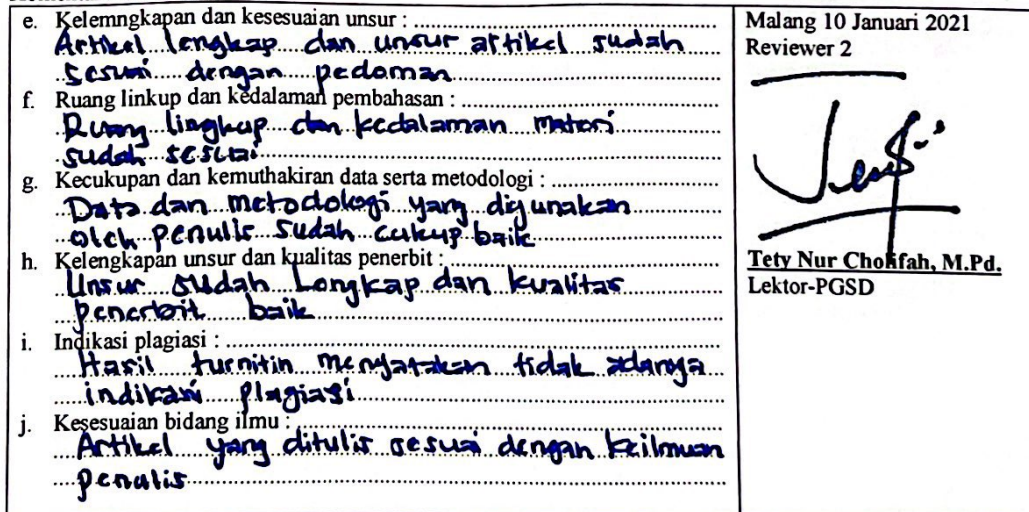 e. Kelemngkapan dan kesesuaian unsur :
Artikel lengkap dan unsur artikel sudah
sesuai dengan pedoman
f. Ruang linkup dan kedalaman pembahasan :
Ruang lingkup dan kedalaman materi
sudah sesuai
g. Kecukupan dan kemuthakiran data serta metodologi :
Data dan metodologi yang digunakan
oleh penulis sudah cukup baik
h. Kelengkapan unsur dan kualitas penerbit :
Unsur sudah Lengkap dan kualitas
penerbit baik
i. Indikasi plagiasi :
Hasil turnitin menyatakan tidak adanya
indikasi plagiasi
j. Kesesuaian bidang ilmu :
Artikel yang ditulis sesuai dengan keilmuan
penulis
Malang 10 Januari 2021
Reviewer 2
Tety Nur Cholifah, M.Pd.
Lektor-PGSD